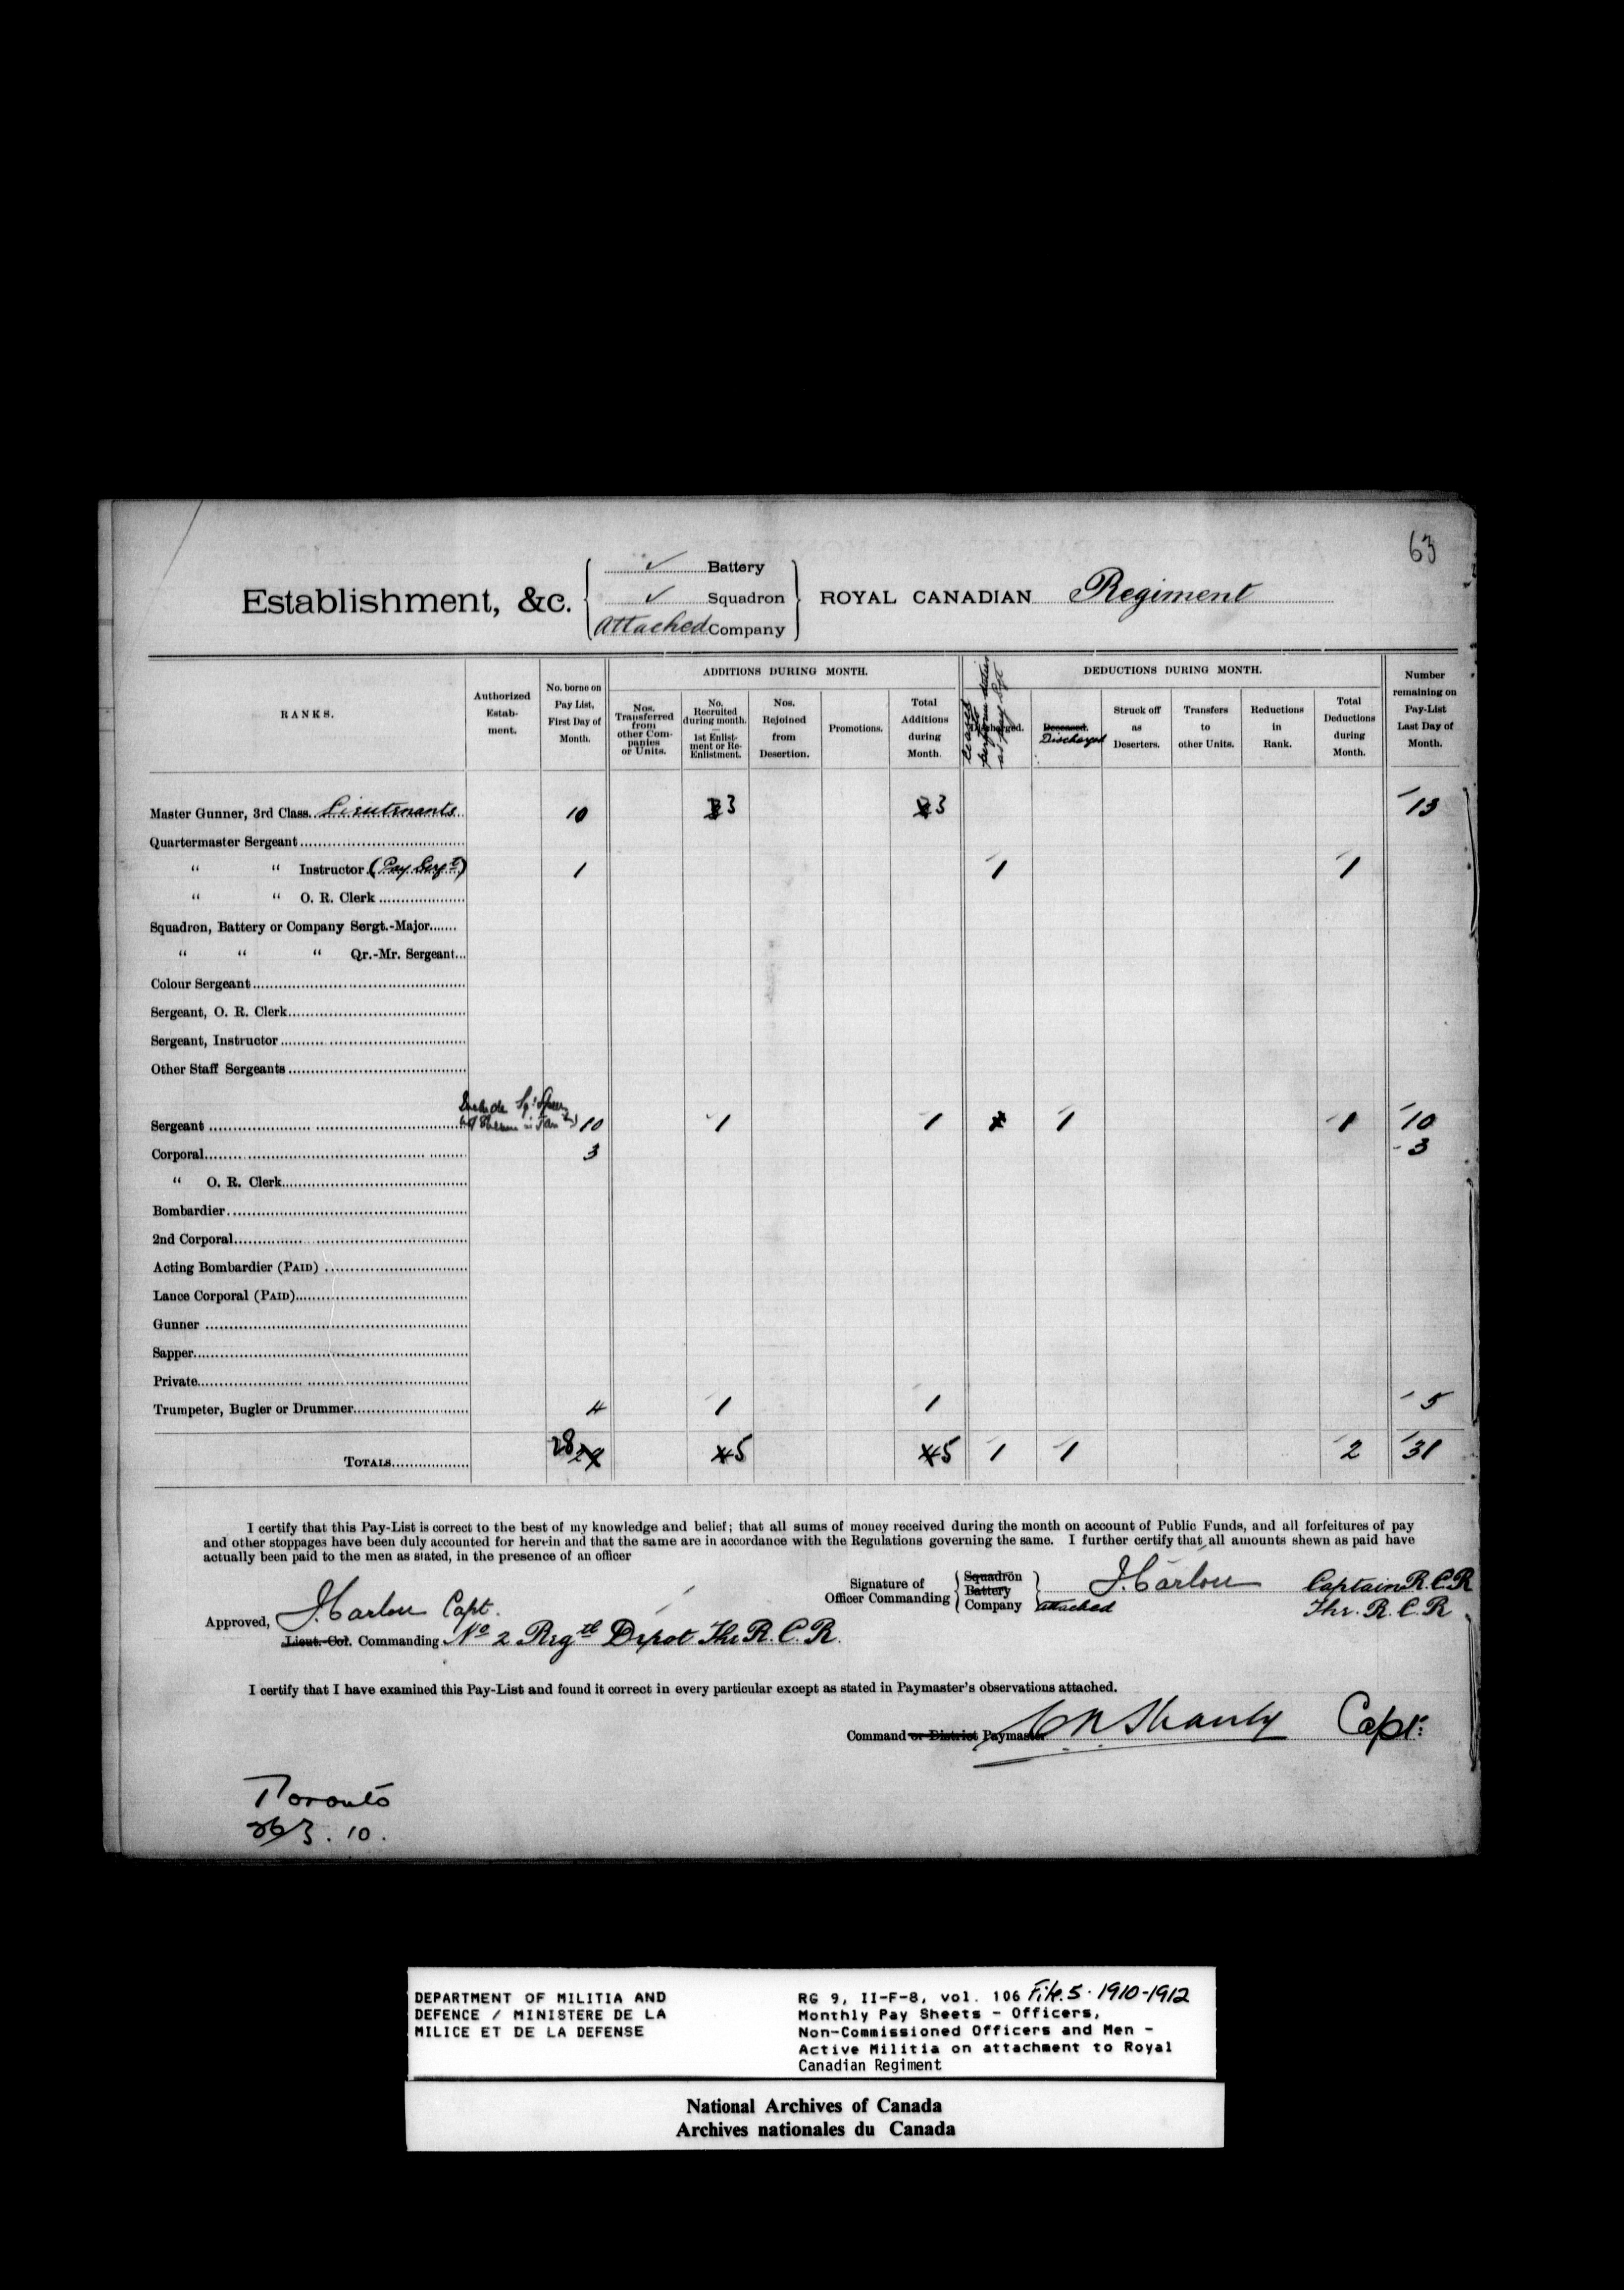 63
✓ Battery
Establishment, &c. ✓ Squadron ROYAL CANADIAN Regiment
Attached Company
RANKS.
Authorized Estab-ment.
No. borne on Pay List, First Day of Month.
ADDITIONS DURING MONTH.
Nos. Transferred from other Com-panies or Units.
No. Recruited during month. — 1st Enlist-ment or Re-Enlistment.
Nos. Rejoined from Desertion.
Promotions.
Total Additions during Month.
DEDUCTIONS DURING MONTH.
Discharged.
Deceased. Discharged
Struck off as Deserters.
Transfers to other Units.
Reductions in Rank.
Total Deductions during Month.
Number remaining on Pay-List Last Day of Month.
Master Gunner, 3rd Class. Lieutenants 10 3 3 13
Quartermaster Sergeant
“ “ Instructor (Pay Sergt) 1 1 1
“ “ O. R. Clerk
Squadron, Battery or Company Sergt.-Major
“ “ “ Qr.-Mr. Sergeant
Colour Sergeant
Sergeant, O. R. Clerk
Sergeant, Instructor
Other Staff Sergeants
Sergeant 10 1 1 1 1 10
Corporal 3 3
“ O. R. Clerk
Bombardier
2nd Corporal
Acting Bombardier (PAID)
Lance Corporal (PAID)
Gunner
Sapper
Private
Trumpeter, Bugler or Drummer 4 1 1 5
TOTALS 28 5 5 1 1 2 31
I certify that this Pay-List is correct to the best of my knowledge and belief; that all sums of money received during the month on account of Public Funds, and all forfeitures of pay
and other stoppages have been duly accounted for herein and that the same are in accordance with the Regulations governing the same. I further certify that all amounts shewn as paid have
actually been paid to the men as stated, in the presence of an officer
Signature of Officer Commanding Squadron Battery Company attached Captain R.C.R
The R.C.R
Approved, Capt.
Lieut.-Col. Commanding No 2 Regtl Depot The R.C.R.
I certify that I have examined this Pay-List and found it correct in every particular except as stated in Paymaster's observations attached.
Command or District Paymaster Capt.
Toronto
26/3.10.
DEPARTMENT OF MILITIA AND
DEFENCE / MINISTERE DE LA
MILICE ET DE LA DEFENSE
RG 9, II-F-8, vol. 106 File. 5. 1910-1912
Monthly Pay Sheets - Officers,
Non-Commissioned Officers and Men -
Active Militia on attachment to Royal
Canadian Regiment
National Archives of Canada
Archives nationales du Canada